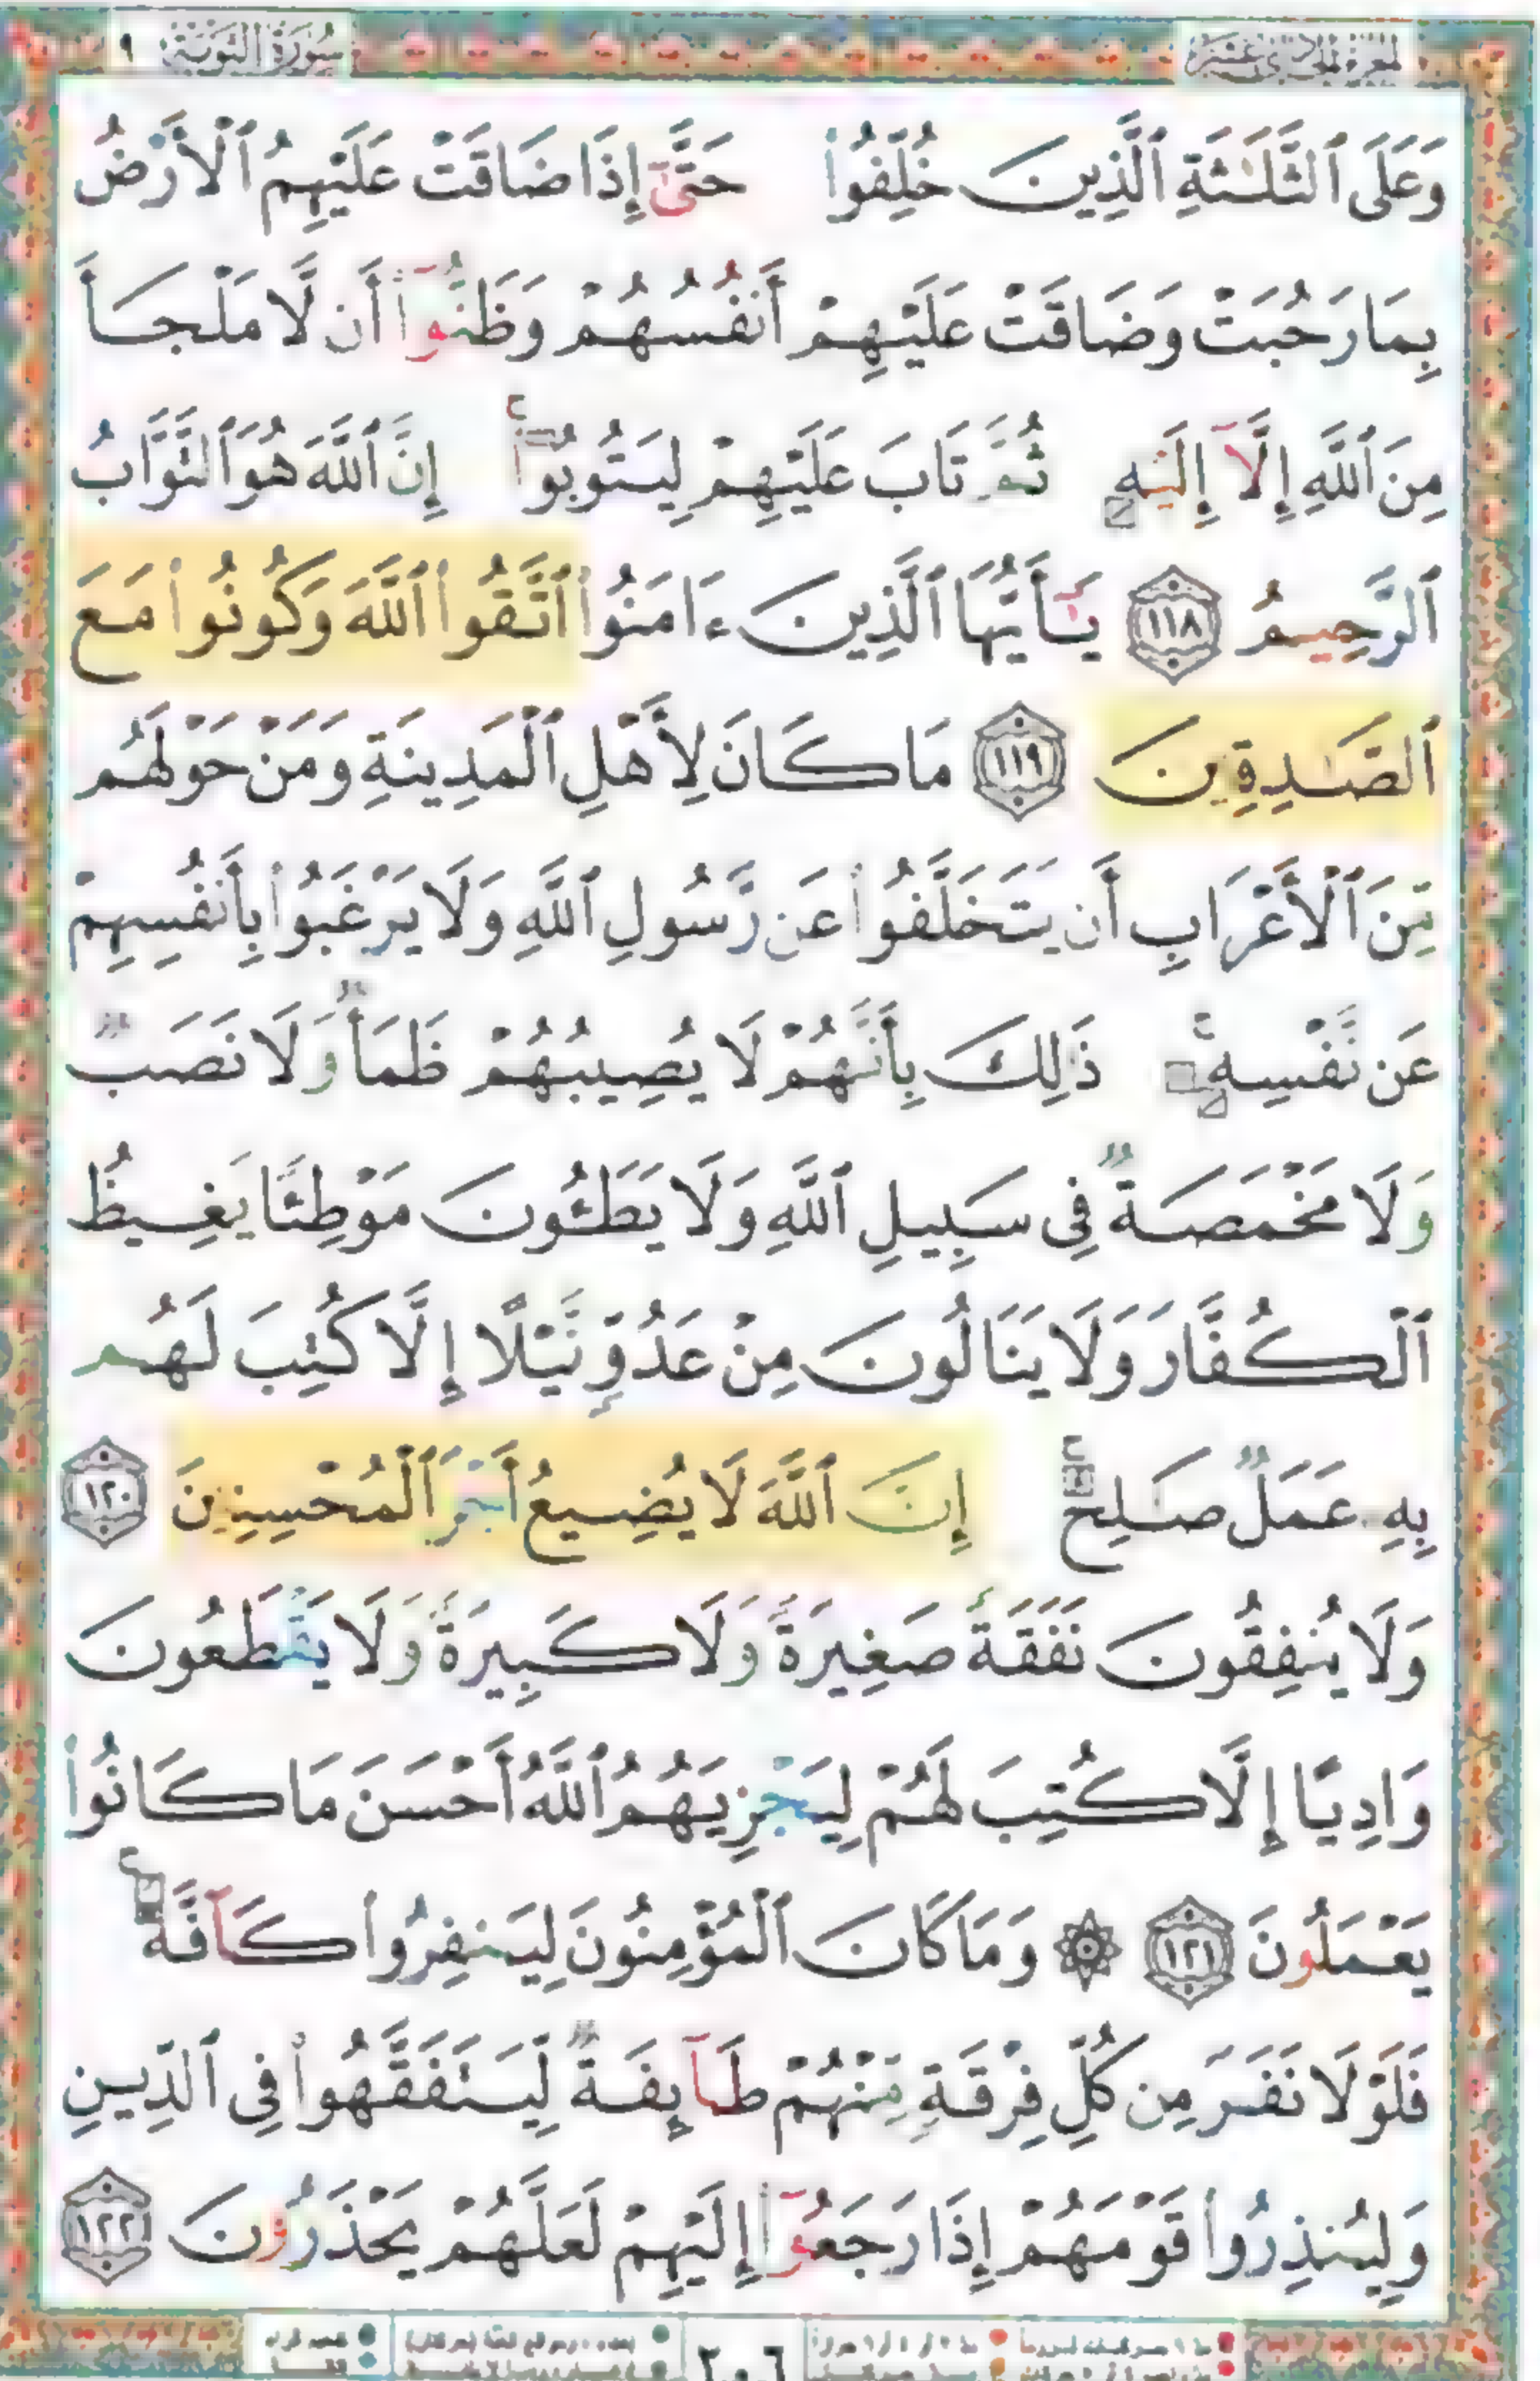 سُورَةُ التَّوْبَةِ ٩
وَعَلَى ٱلثَّلَـٰثَةِ ٱلَّذِينَ خُلِّفُوا۟ حَتَّىٰٓ إِذَا ضَاقَتْ عَلَيْهِمُ ٱلْأَرْضُ
بِمَا رَحُبَتْ وَضَاقَتْ عَلَيْهِمْ أَنفُسُهُمْ وَظَنُّوٓا۟ أَن لَّا مَلْجَأَ
مِنَ ٱللَّهِ إِلَّآ إِلَيْهِ ثُمَّ تَابَ عَلَيْهِمْ لِيَتُوبُوٓا۟ ۚ إِنَّ ٱللَّهَ هُوَ ٱلتَّوَّابُ
ٱلرَّحِيمُ ١١٨ يَـٰٓأَيُّهَا ٱلَّذِينَ ءَامَنُوا۟ ٱتَّقُوا۟ ٱللَّهَ وَكُونُوا۟ مَعَ
ٱلصَّـٰدِقِينَ ١١٩ مَا كَانَ لِأَهْلِ ٱلْمَدِينَةِ وَمَنْ حَوْلَهُم
مِّنَ ٱلْأَعْرَابِ أَن يَتَخَلَّفُوا۟ عَن رَّسُولِ ٱللَّهِ وَلَا يَرْغَبُوا۟ بِأَنفُسِهِمْ
عَن نَّفْسِهِ ۚ ذَٰلِكَ بِأَنَّهُمْ لَا يُصِيبُهُمْ ظَمَأٌ وَلَا نَصَبٌ
وَلَا مَخْمَصَةٌ فِى سَبِيلِ ٱللَّهِ وَلَا يَطَـُٔونَ مَوْطِئًا يَغِيظُ
ٱلْكُفَّارَ وَلَا يَنَالُونَ مِنْ عَدُوٍّ نَّيْلًا إِلَّا كُتِبَ لَهُم
بِهِ عَمَلٌ صَـٰلِحٌ ۚ إِنَّ ٱللَّهَ لَا يُضِيعُ أَجْرَ ٱلْمُحْسِنِينَ ١٢٠
وَلَا يُنفِقُونَ نَفَقَةً صَغِيرَةً وَلَا كَبِيرَةً وَلَا يَقْطَعُونَ
وَادِيًا إِلَّا كُتِبَ لَهُمْ لِيَجْزِيَهُمُ ٱللَّهُ أَحْسَنَ مَا كَانُوا۟
يَعْمَلُونَ ١٢١ ۞ وَمَا كَانَ ٱلْمُؤْمِنُونَ لِيَنفِرُوا۟ كَآفَّةً ۚ
فَلَوْلَا نَفَرَ مِن كُلِّ فِرْقَةٍ مِّنْهُمْ طَآئِفَةٌ لِّيَتَفَقَّهُوا۟ فِى ٱلدِّينِ
وَلِيُنذِرُوا۟ قَوْمَهُمْ إِذَا رَجَعُوٓا۟ إِلَيْهِمْ لَعَلَّهُمْ يَحْذَرُونَ ١٢٢
٢٠٦